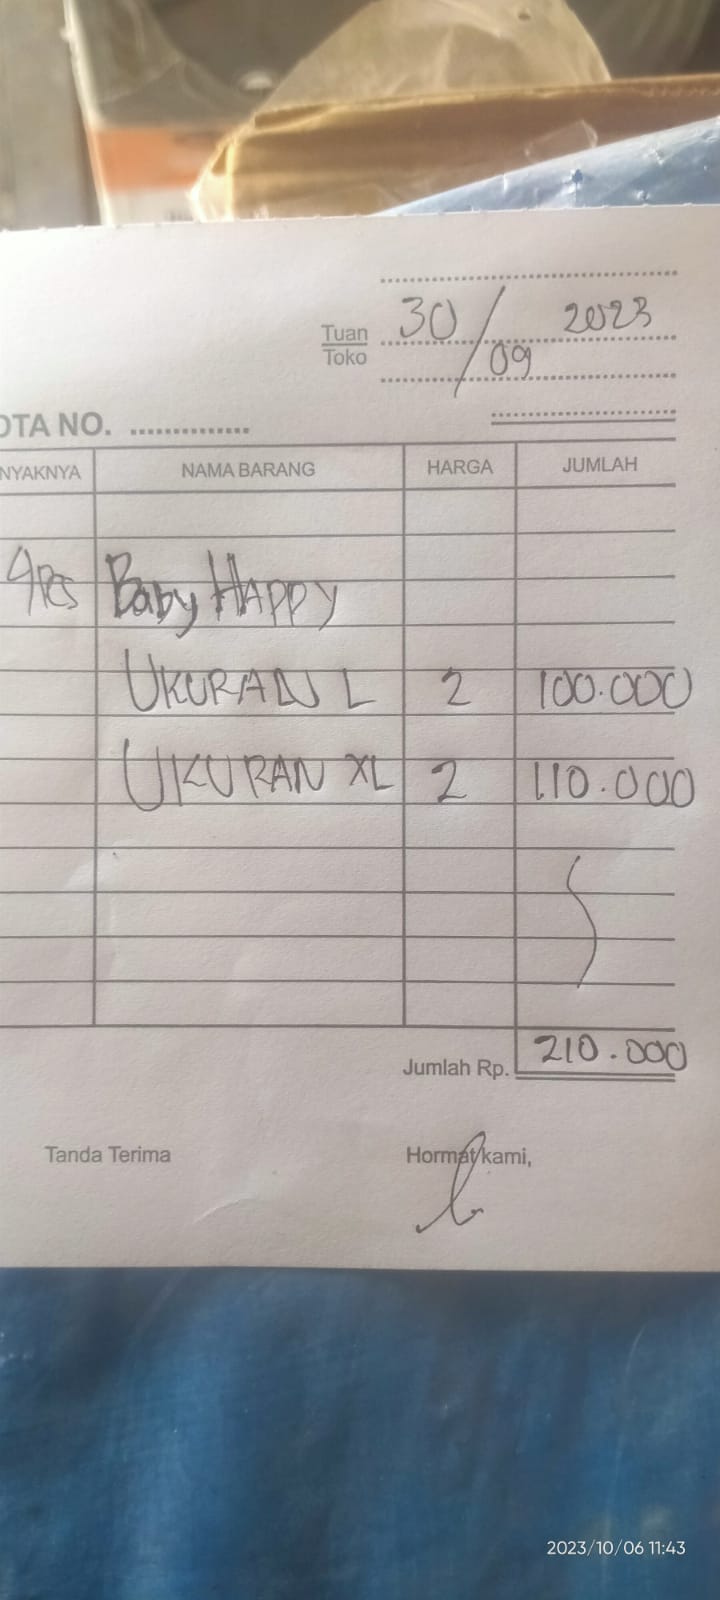 30/09 2023
Tuan
Toko
OTA NO. ..............
NYAKNYA NAMA BARANG HARGA JUMLAH
4Pcs Baby HAPPY
UKURAN L 2 100.000
UKURAN XL 2 110.000
Jumlah Rp. 210.000
Tanda Terima Hormat kami,
2023/10/06 11:43